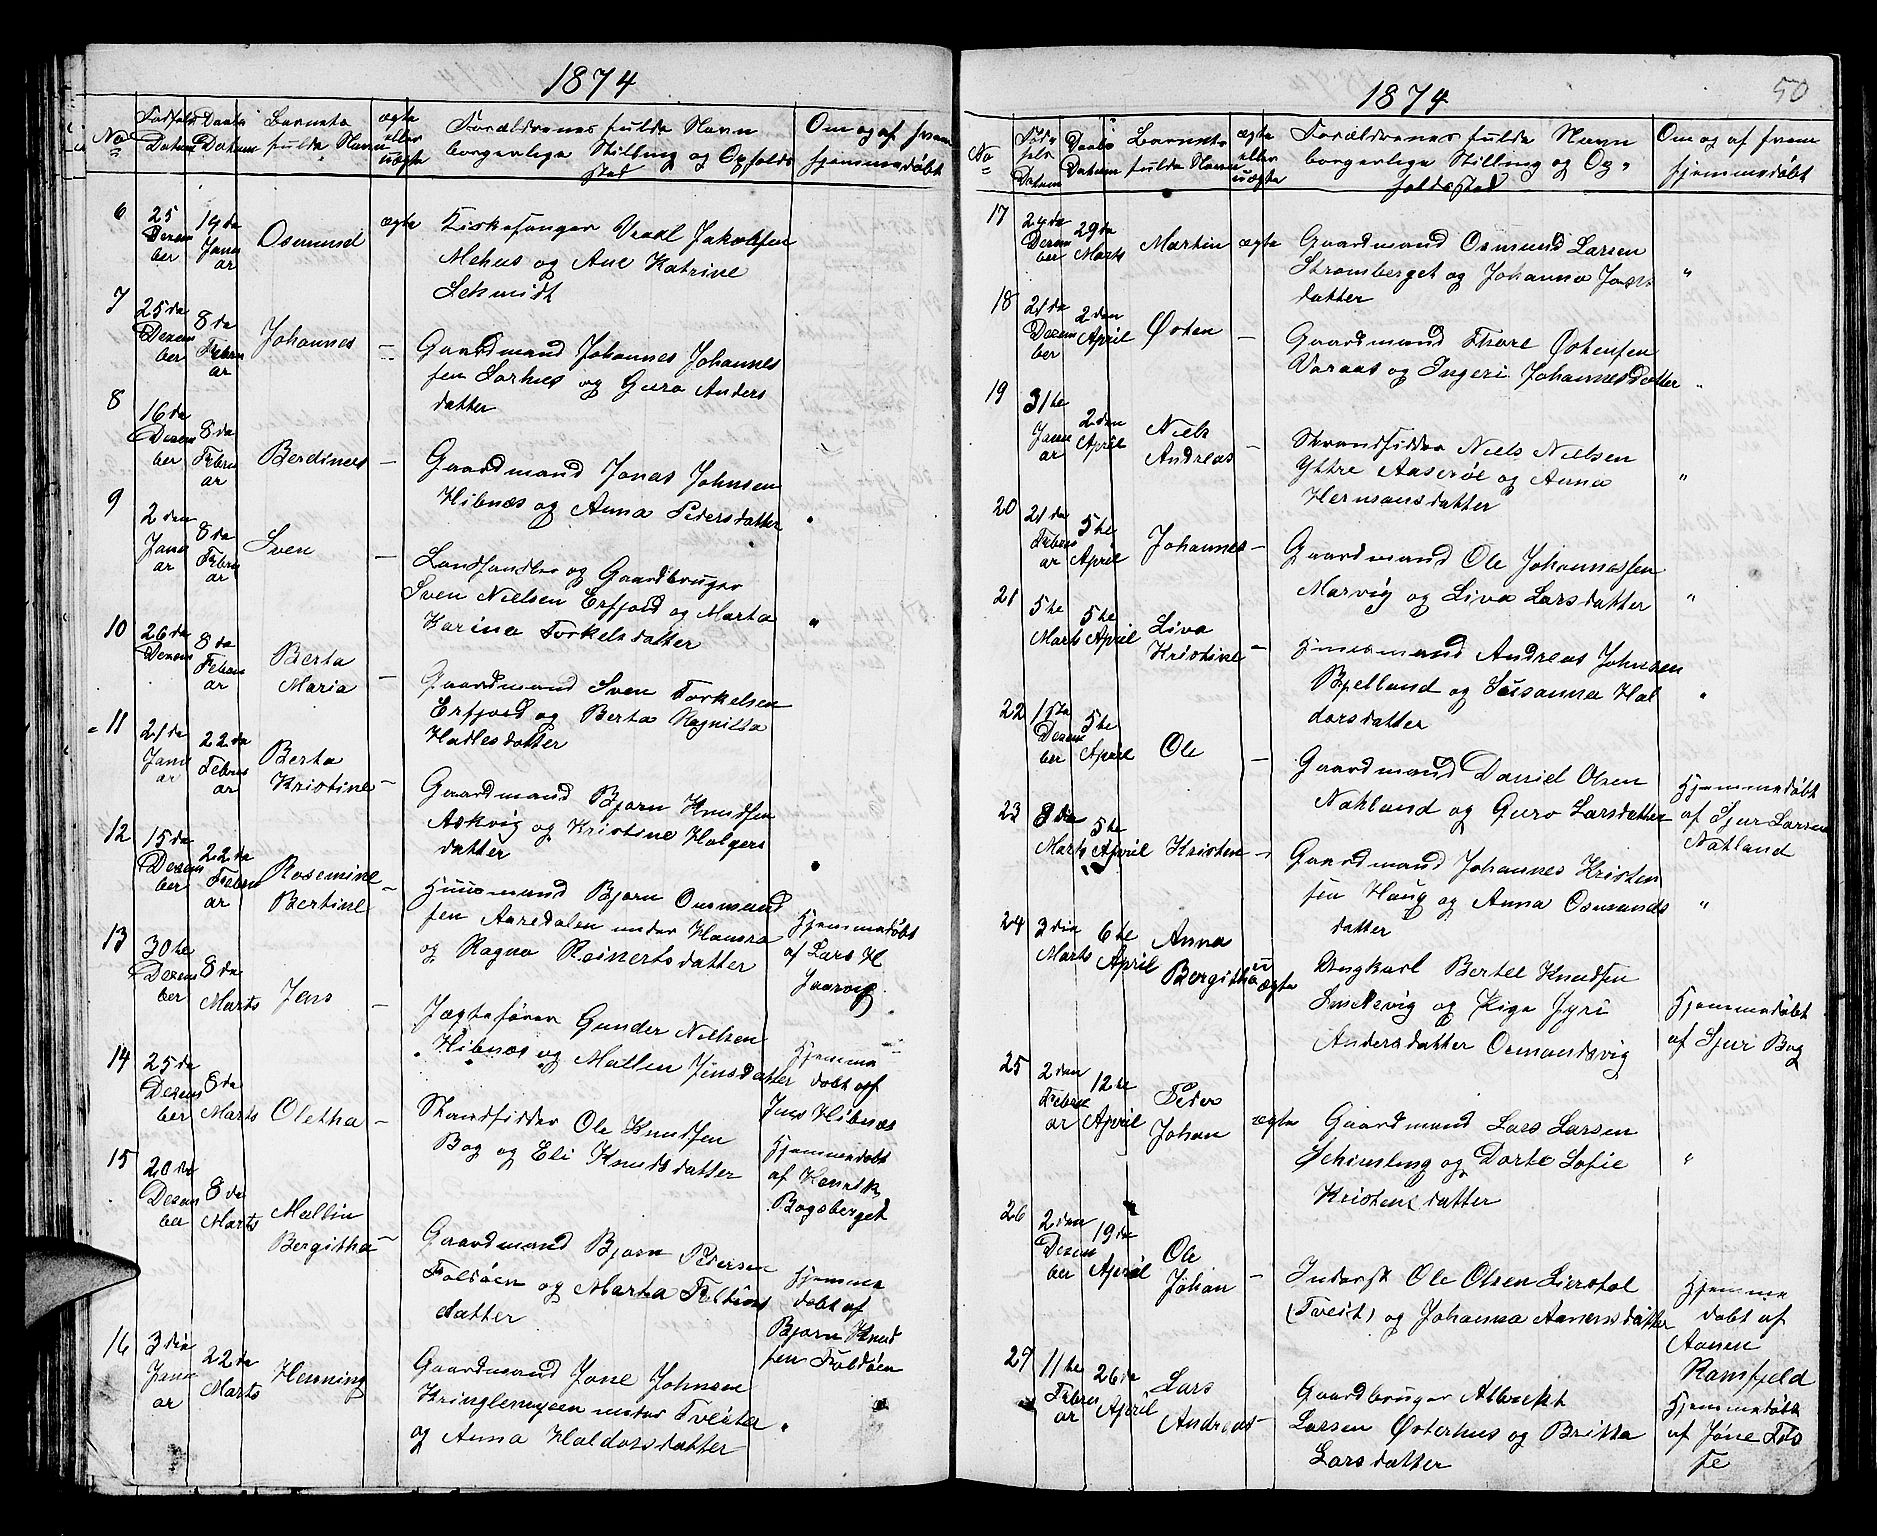 1874
No
Fødsels Datum
Daabs Datum
Barnets fulde Navn
ægte eller uægte
Forældrenes fulde Navn
borgerlige Stilling og Opholds
sted
Om og af hvem
hjemmedøbt
6
25 Dezember
19da Januar
Osmund
ægte
Kirkesanger Vraal Jakobsen
Mehus og Ane Katrine
Schmidt
7
25da Dezember
8da Februar
Johannes
-
Gaardmand Johannes Johannes
sen Sørhus og Guro Anders
datter
8
16da Dezember
8da Februar
Berdines
-
Gaardmand Jonas Johnsen
Hibnæs og Anna Pedersdatter
9
2den Januar
8da Februar
Sven
-
Landhandler og Gaardbruger
Sven Nielsen Erfjord og Marta
Karina Torkelsdatter
"
10
26da Dezem
8da Februar
Berta
Maria
-
Gaardmand Sven Torkelsen
Erfjord og Berta Ragnilla
Hallesdatter
11
21da Januar
22da Februar
Berta
Kristine
-
Gaardmand Bjørn Knudsen
Askvig og Kristine Holgers
datter
12
15da Dezember
22da Februar
Rosemine
Bertine
-
Huusmand Bjørn Osmund
sen Aaredalen under Hamra
og Ragna Reinertsdatter
Hjemmedøbt
af Lars H
Haarvig
13
30te Dezember
8da Marts
Jens
-
Jægtefører Gunder Nielsen
Hibnæs og Mallen Jensdatter
Hjemme
døbt af
Jens Hibnæs
14
25da Dezember
8da Marts
Oletha
-
Strandsidder Ole Knudsen
Bog og Eli Knudsdatter
Hjemmedøbt
af Henrik
Bogsberget
15
20da Dezember
8da Marts
Mallin
Bergitha
-
Gaardmand Bjørn Pedersen
Foldøen og Marta
datter
Hjemme
døbt af
Bjørn Knud
sen Foldøen
16
3die Januar
22da Marts
Henning
Gaardmand Jone Johnsen
Kringlemyren under Tveiter
og Anna Haldorsdatter
"
50
1874
No
Fødsels Datum
Daabs Datum
Barnets fulde Navn
ægte eller uægte
Forældrenes fulde Navn
borgerlige Stilling og Op-
holdssted
Om og af hvem
hjemmedøbt
17
24da Dezember
29da Marts
Martin
ægte
Gaardmand Osmund Larsen
Stromberget og Johanna Jens
datter
"
18
21da Dezember
2den April
Østen
-
Gaardmand Thore Østensen
Varaas og Ingeri Johannesdatter
"
19
31te Januar
2den April
Niels
Andreas
-
Strandsidder Niels Nielsen
Yttre Aaserøe og Anna
Hermansdatter
"
20
21da Februar
5te April
Johannes
-
Gaardmand Ole Johannessen
Marvig og Liva Larsdatter
"
21
5te Marts
5te April
Liva
Kristine
-
Huusmand Andreas Johnsen
Bjelland og Susanna Hal
dorsdatter
"
22
Dezember
5te April
Ole
-
Gaardmand Daniel Olsen
Natland og Guro Larsdatter
Hjemmedøbt
af Sjur Larsen
Natland
23
8da Marts
5te April
Kristen
-
Gaardmand Johannes Kristen
sen Haug og Anna Osmunds
datter
"
24
3die Marts
6te April
Anna
Bergitha
uægte
Ungkarl Bertel Knudsen
Smedsvig og Pige Jyri
Andersdatter Osmundsvig
Hjemmedøbt
af Sjur Bog
25
2den Februar
12te April
Peder
Johan
ægte
Gaardmand Lars Larsen
og Dorte Sofie
Kristensdatter
"
26
2den Dezember
19da April
Ole
Johan
-
Inderst Ole Olsen Lierstøl
(Tveit) og Johanna Aanensdatter
Hjemme
døbt af
Aanen
Ramsfjeld
27
11te Februar
26da April
Lars
Andreas
-
Gaardbruger Albrekt
Larsen Østerhus og Britta
Larsdatter
Hjemmedøbt
af Jone Fos
se